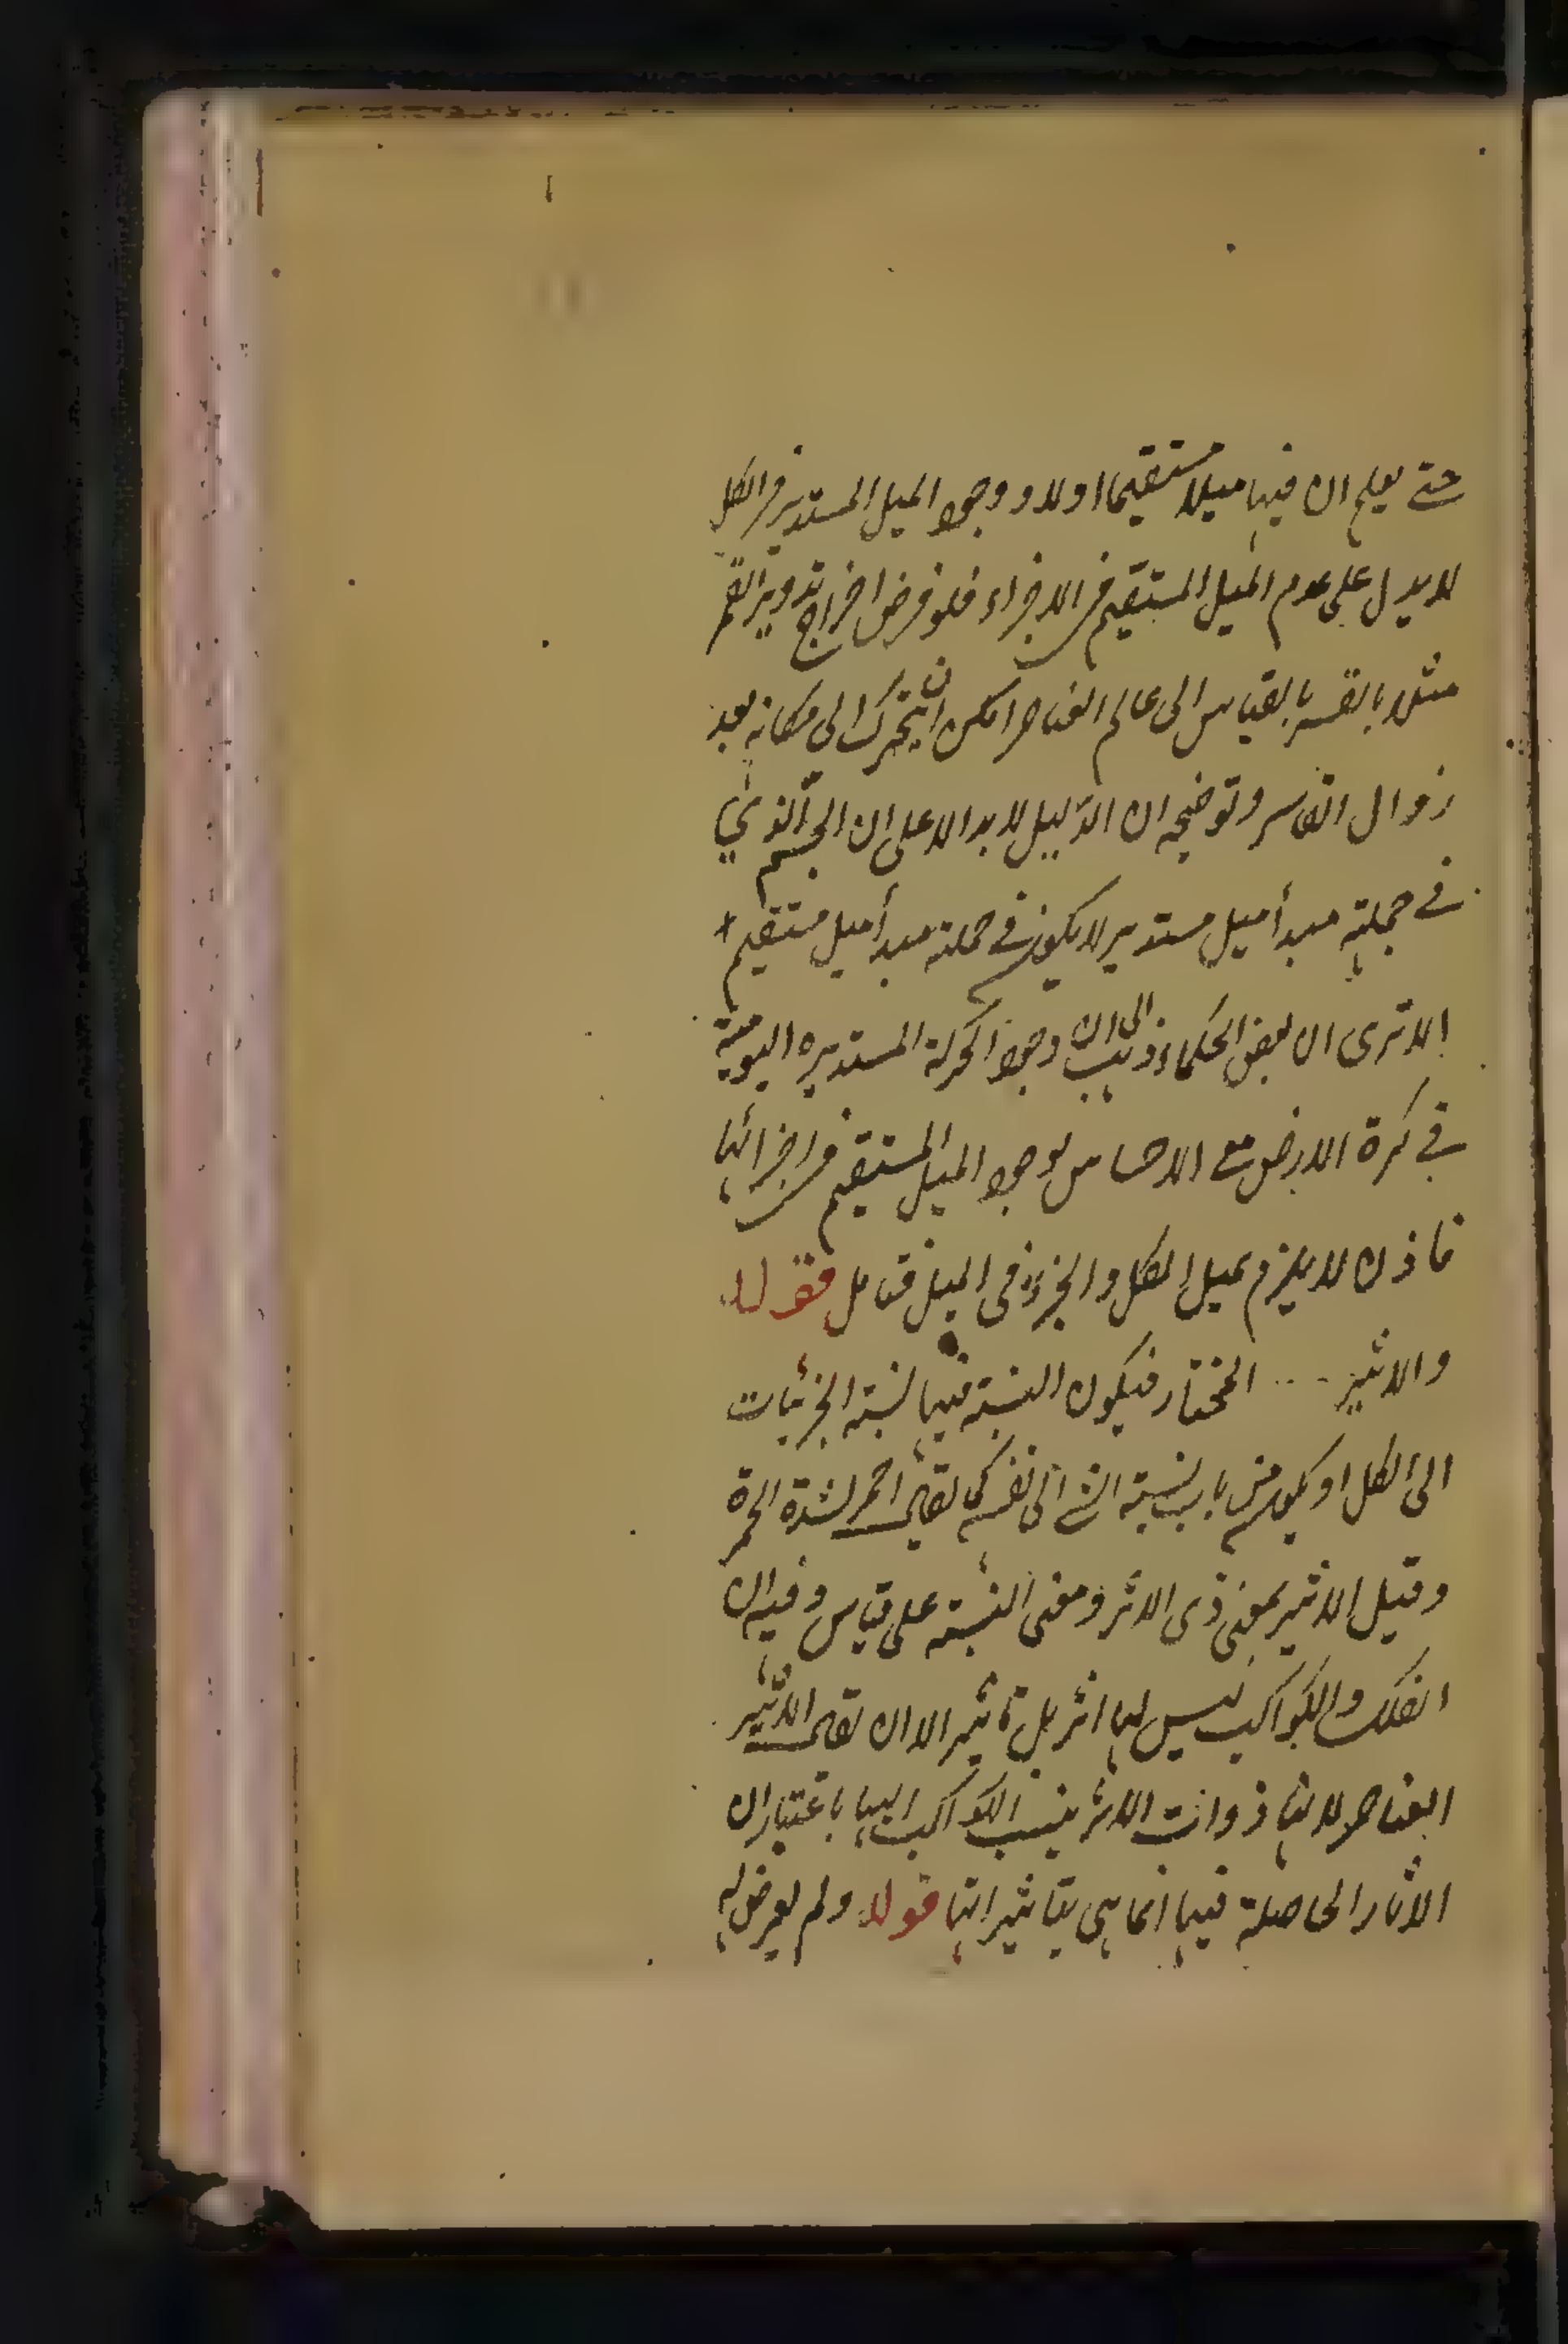 حتى يعلم ان فيها ميلا مستقيما اولا ووجود الميل المستدير في الكل
لا يدل على عدم الميل المستقيم في الاجزاء فلو فرض اخراج تدوير القمر
مثلا بالقسر بالقياس الى عالم العناصر امكن ان يتحرك الى مكانه بعد
زوال القاسر وتوضيحه ان الدليل لا يدل الا على ان الجسم الذي
في جملته مبدأ ميل مستدير لا يكون في جملته مبدأ ميل مستقيم
الا ترى ان بعض الحكماء ذهب الى ان وجود الحركة المستديره اليومية
في كرة الارض مع الاحساس بوجود الميل المستقيم في اجزائها
فاذن لا يلزم ميل الكل والجزء في الميل فتامل قوله
والاثير ... المختار فيكون النسبة فيها نسبة الجزئيات
الى الكل او يكون من باب نسبة الشئ الى نفسه كما يقال احمر لشدة الحمرة
وقيل الاثير بمعنى ذى الاثر ومعنى النسبة على قياس وفيه ان
الفلك والكواكب ليس لها اثر بل تاثير الا ان يقال الاثير
العناصر لانها ذوات الاثر ينسب الكواكب اليها باعتبار ان
الاثار الحاصلة فيها انما هى بتاثيراتها قوله ولم يعرض له